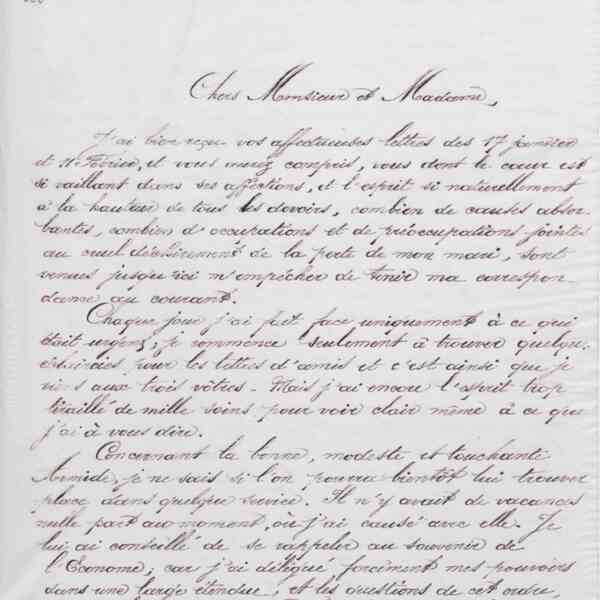 Chers Monsieur et Madame,
J'ai bien reçu vos affectueuses lettres des 17 janvier
et 11 Février, et vous aurez compris, vous dont le cœur est
si vaillant dans ses affections, et l'esprit si naturellement
à la hauteur de tous les devoirs, combien de causes absor-
bantes, combien d'occupations et de préoccupations jointes
au cruel déchirement de la perte de mon mari, sont
venues jusqu'ici m'empêcher de tenir ma correspon-
dance au courant.
Chaque jour j'ai fait face uniquement à ce qui
était urgent, je commence seulement à trouver quelque
éclaircies pour les lettres d'amis et c'est ainsi que je
viens aux trois vôtres - Mais j'ai encore l'esprit trop
tiraillé de mille soins pour voir clair même à ce que
j'ai à vous dire.
Concernant la bonne, modeste et touchante
Armide, je ne sais si l'on pourra bientôt lui trouver
place dans quelque service. Il n'y avait de vacances
nulle part au moment, où j'ai causé avec elle. Je
lui ai conseillé de se rappeler au souvenir de
l'Econome; car j'ai délégué forcément mes pouvoirs
dans une large étendue, et les questions de cet ordre,